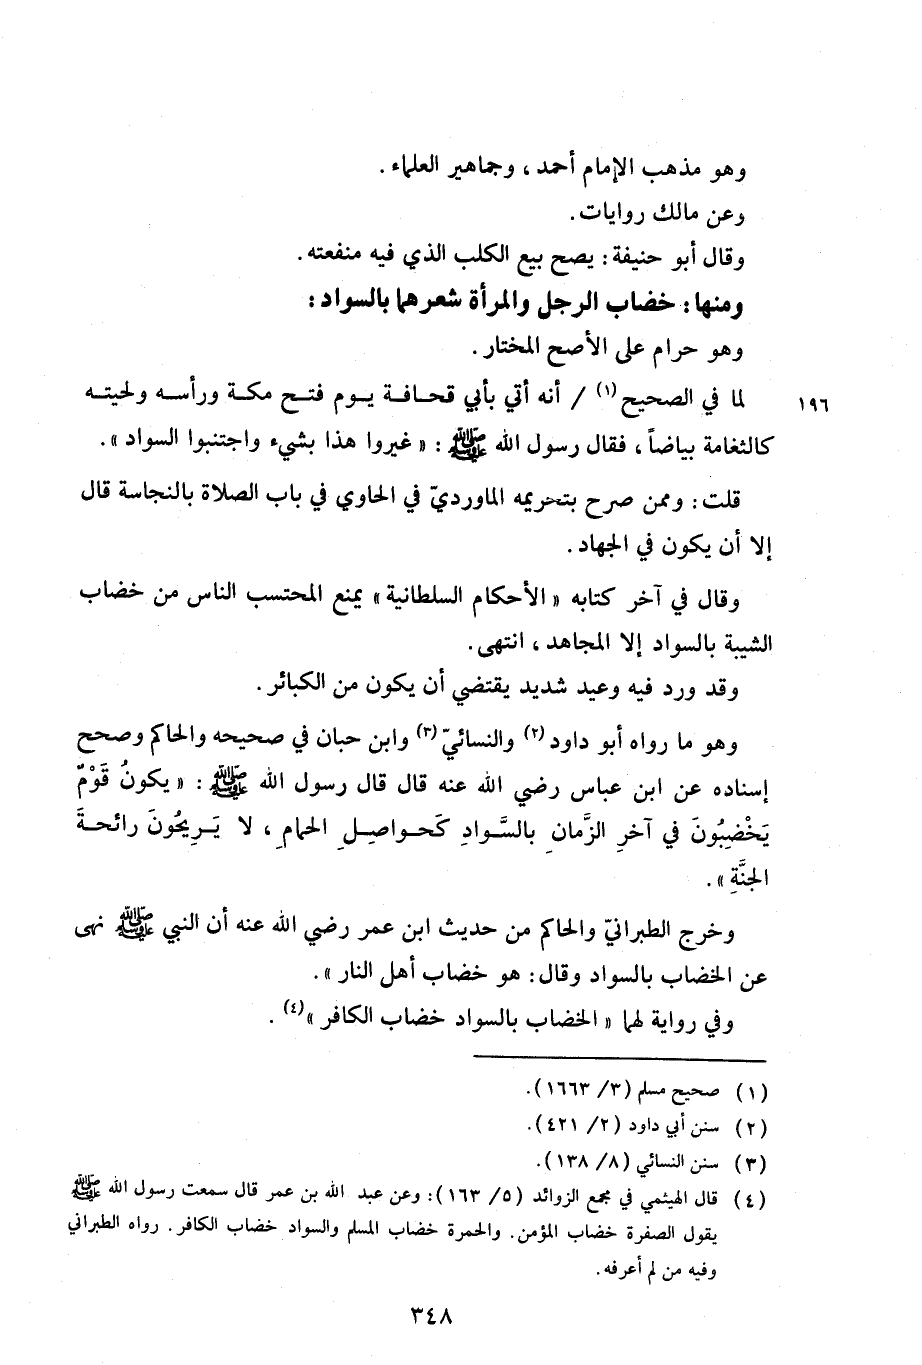 وهو مذهب الإمام أحمد ، وجماهير العلماء .
وعن مالك روايات.
وقال أبو حنيفة: يصح بيع الكلب الذي فيه منفعته.
ومنها: خضاب الرجل والمرأة شعرهما بالسواد:
وهو حرام على الأصح المختار .
لما في الصحيح(١) / أنه أتي بأبي قحافة يوم فتح مكة ورأسه ولحيته ١٩٦
كالثغامة بياضاً ، فقال رسول الله ﷺ : « غيروا هذا بشيء واجتنبوا السواد ».
قلت: وممن صرح بتحريمه الماورديّ في الحاوي في باب الصلاة بالنجاسة قال
إلا أن يكون في الجهاد.
وقال في آخر كتابه « الأحكام السلطانية » يمنع المحتسب الناس من خضاب
الشيبة بالسواد إلا المجاهد ، انتهى.
وقد ورد فيه وعيد شديد يقتضي أن يكون من الكبائر .
وهو ما رواه أبو داود(٢) والنسائيّ(٣) وابن حبان في صحيحه والحاكم وصحح
إسناده عن ابن عباس رضي الله عنه قال قال رسول الله ﷺ : « يكونُ قَوْمٌ
يَخْضِبُونَ في آخرِ الزَّمانِ بالسَّوادِ كَحواصِلِ الحمامِ ، لا يَرِيحُونَ رائحةَ
الجنَّةِ ».
وخرج الطبرانيّ والحاكم من حديث ابن عمر رضي الله عنه أن النبي ﷺ نهى
عن الخضاب بالسواد وقال: هو خضاب أهل النار ».
وفي رواية لهما « الخضاب بالسواد خضاب الكافر »(٤) .
(١) صحيح مسلم (٣/ ١٦٦٣).
(٢) سنن أبي داود (٢/ ٤٢١).
(٣) سنن النسائي (٨/ ١٣٨).
(٤) قال الهيثمي في مجمع الزوائد (٥/ ١٦٣): وعن عبد الله بن عمر قال سمعت رسول الله ﷺ
يقول الصفرة خضاب المؤمن. والحمرة خضاب المسلم والسواد خضاب الكافر. رواه الطبراني
وفيه من لم أعرفه.
٣٤٨